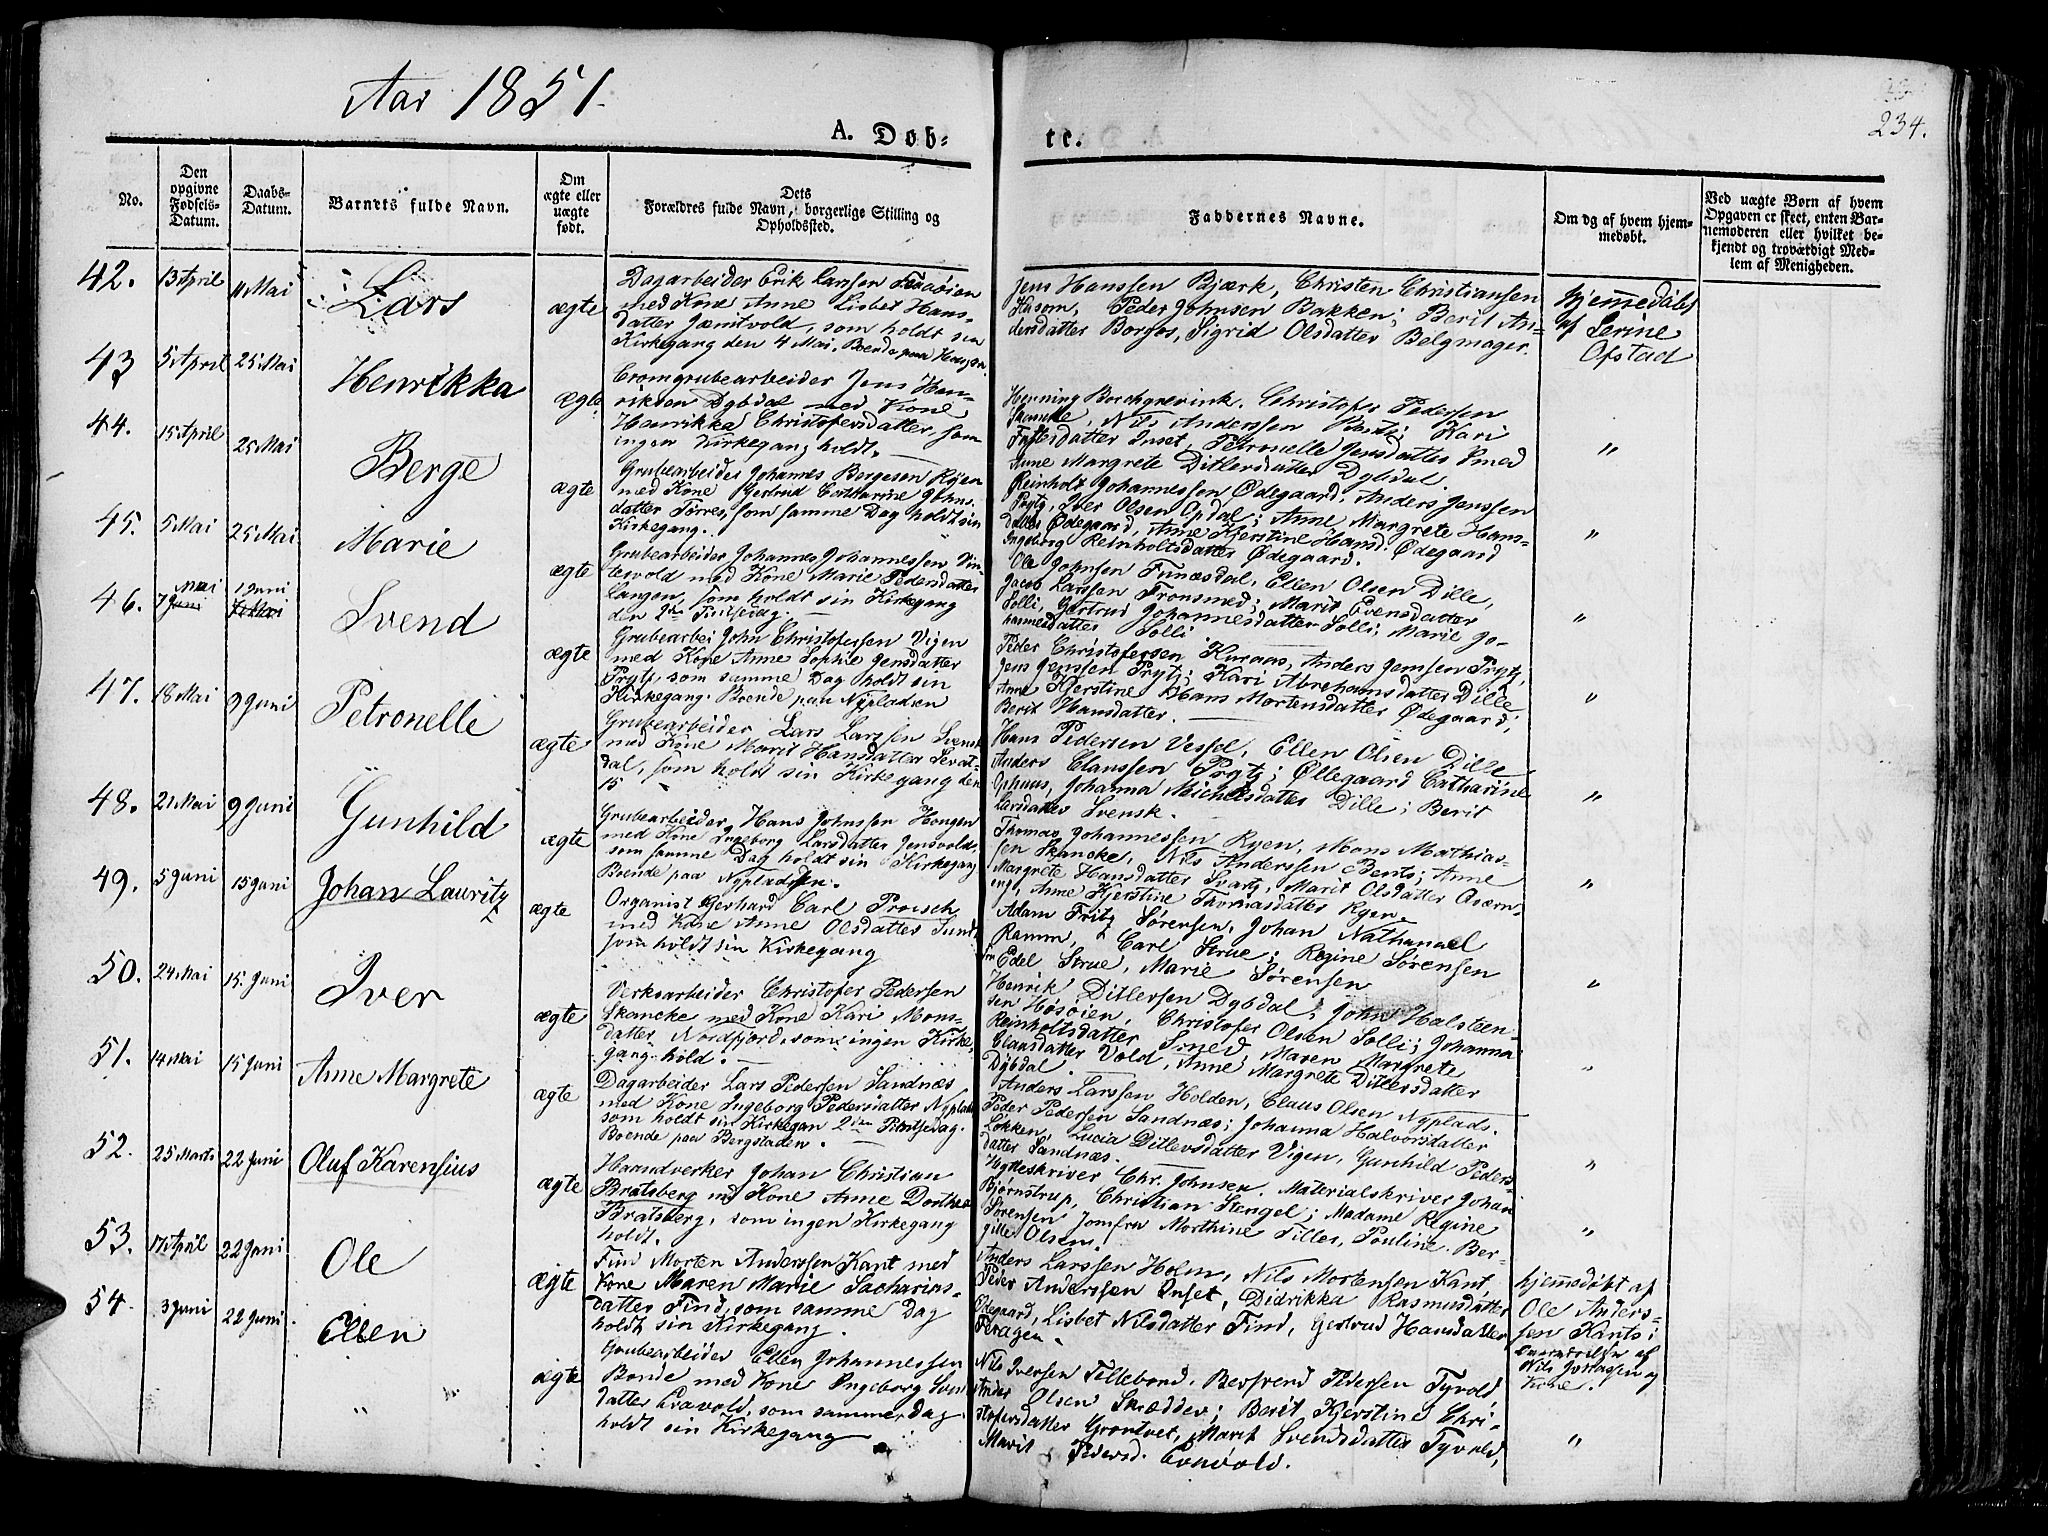 Aar 1851.
234.
A. Døb-
te.
No.
Den opgivne Fødsels-Datum.
Daabs-Datum.
Barnets fulde Navn.
Om ægte eller uægte født.
Dets Forældres fulde Navn, borgerlige Stilling og Opholdssted.
Faddernes Navne.
Om og af hvem hjem-medøbt.
Ved uægte Børn af hvem Opgaven er skeet, enten Bar-nemoderen eller hvilket be-kjendt og troværdigt Med-lem af Menigheden.
42. 13 April 11 Mai Lars ægte
Dagarbeider Erik Larssen
med Kone Anne Lisbet Hans-
datter Jensvold, som holdt sin
Kirkegang den 4 Mai. Boende paa
Jens Hanssen Bjørk, Christen Christiansen
Kasom, Peder Johnsen Bakken; Berit An-
dersdatter Borgos, Sigrid Olsdatter Belgmager.
hjemmedøbt
af Serine
Ofstad
43 5 April 25 Mai Henrikka ægte
Cromgrubearbeider Jens Hen-
riksen Dybdal med Kone
Henrikka Christofersdatter, som
ingen Kirkegang holdt.
Henning Borchgrevink. Christofer Pedersen
Skancke, Nils Anderssen Bents; Kari
datter Inset, Petronelle Jensdatter Smed
Anne Margrete Ditlevsdatter Dybdal.
"
44. 15 April 25 Mai Berge ægte
Grubearbeider Johannes Bergesen Ryen
med Kone Gertrud Cathrine Johns-
datter Torres, som samme Dag holdt sin
Kirkegang.
Reinholt Johannessen Ødegaard, Anders Jenssen
Prytz, Iver Olsen Opdal; Anne Margrete Hans-
datter Ødegaard, Anne Kjerstine Hansd. Ødegaard
Ingeborg Reinholtsdatter Ødegaard.
"
45. 5 Mai 25 Mai Marie ægte
Grubearbeider Johannes Johannessen
med Kone Marie Pedersdatter
Langen, som holdt sin Kirkegang
den 2den Pintsedag.
Ole Johnsen Funæsdal, Ellen Olsen Dille,
Jacob Larssen Tronsmed; Marit Evensdatter
Solli, Gertrud Johannesdatter Solli, Marie Jo-
hannesdatter Solli.
"
46. 7 Mai 1 Juni Svend ægte
Grubearbei John Christofersen Vigen
med Kone Anne Sophie Jensdatter
Prytz, som samme Dag holdt sin
Kirkegang. Boende paa Nypladsen
Peder Christofersen Kuraas, Anders Jensen Prytz,
Jens Jenssen Prytz; Kari Abrahamsdatter Dille
Anne Kjerstine Hans Mortensdatter Ødegaard;
Berit Hansdatter.
"
47. 18 Mai 9 Juni Petronelle ægte
Grubearbeider Lars Larssen Svensk
med Kone Marit Hansdatter
dal, som holdt sin Kirkegang den
15
Hans Pedersen Vessel, Ellen Olsen Dille
Anders Clanssen Prytz; Ollegaard Catharine
Ophuus, Johanna Michelsdatter Dille; Berit
Larsdatter Svensk.
"
48. 21 Mai 9 Juni Gunhild ægte
Grubearbeider Hans Johnsen Hongen
med Kone Ingeborg Larsdatter Jensvold,
som samme Dag holdt sin Kirkegang
Boende paa Nypladsen.
Thomas Johannessen Ryen, Mons Mathias-
sen Skancke, Nils Anderssen Bents; Anne
Margrete Hansdatter Svartz, Marit Olsdatter Aværn-
eng, Anne Kjerstine Thomasdatter Ryen.
"
49. 5 Juni 15 Juni Johan Lauritz ægte
Organist Gerhard Carl Proisch
med Kone Anne Olsdatter Sund
som holdt sin Kirkegang
Adam Fritz Sørensen, Johan Nathanael
Ramm, Carl Strue; Regine Sørensen
Edel Strue, Marie Sørensen
"
50. 24 Mai 15. Juni Iver ægte
Verksarbeider Christofer Pedersen
Skancke med Kone Kari Mons-
datter Nordfjord, som ingen Kirke-
gang hold.
Henrik Ditlefsen Dybdal, John Halsteen-
sen Høsøien, Christofer Olsen Solli; Johanna
Reinholtsdatter Smed, Maren Margrete
Claasdatter Vold, Anne Margrete Ditlefsdatter
Dybdal.
"
51. 14 Mai 15 Juni Anne Margrete ægte
Dagarbeider Lars Pedersen Sandnæs
med Kone Ingeborg Pedersdatter Nyplads
som holdt sin Kirkegan 2den Pintsedag.
Boende paa Bergstaden.
Anders Larssen Holden, Claus Olsen Nyplads.
Peder Pedersen Sandnæs; Johanna Halvorsdatter
Løkken, Lucia Ditlevsdatter Vigen, Gunhild Peders-
datter Sandnæs.
"
52. 25 Marts 22 Juni Oluf Karensius ægte
Haandverker Johan Christian
Bratsberg md Kone Anne Dorthea
Bratsberg, som ingen Kirkegang
holdt.
Hytteskriver Chr. Johnsen. Materialskriver Johan
Bjørnstrup, Christian Stengel; Madame Regine
Sørensen Jomfru Morthine Tiller, Pouline Ber-
gitte Olsen.
"
53. 17 April 22 Juni Ole ægte
Find Morten Anderssen Kant med
Kone Maren Marie Sacharias-
datter Find, som samme Dag
holdt sin Kirkegang.
Anders Larssen Holm, Nils Mortensen Kant,
Peder Anderssen Inset, Didrikka Rasmusdatter
Ødegaard, Lisbet Nilsdatter Find, Gertrud Hansdatter
Feragen.
hjemmedøbt af
Ole Anders-
sen Kant i
Overværelse af
Nils Jostagen og
Kone.
54. 3 Juni 22 Juni. Ellen ægte
Grubearbeider Ellen Johannessen
Bonde med Kone Ingeborg Svens-
datter Evavold, som samme Dag
holdt sin Kirkegang
Nils Iversen Tollebond. Berfvend Pedersen Tyvold,
Ander Olsen Smædder; Berit Kjerstine Chri-
stofersdatter Grontvet, Marit Svendsdatter Tyvold,
Marit Pedersd. Evavold.
"